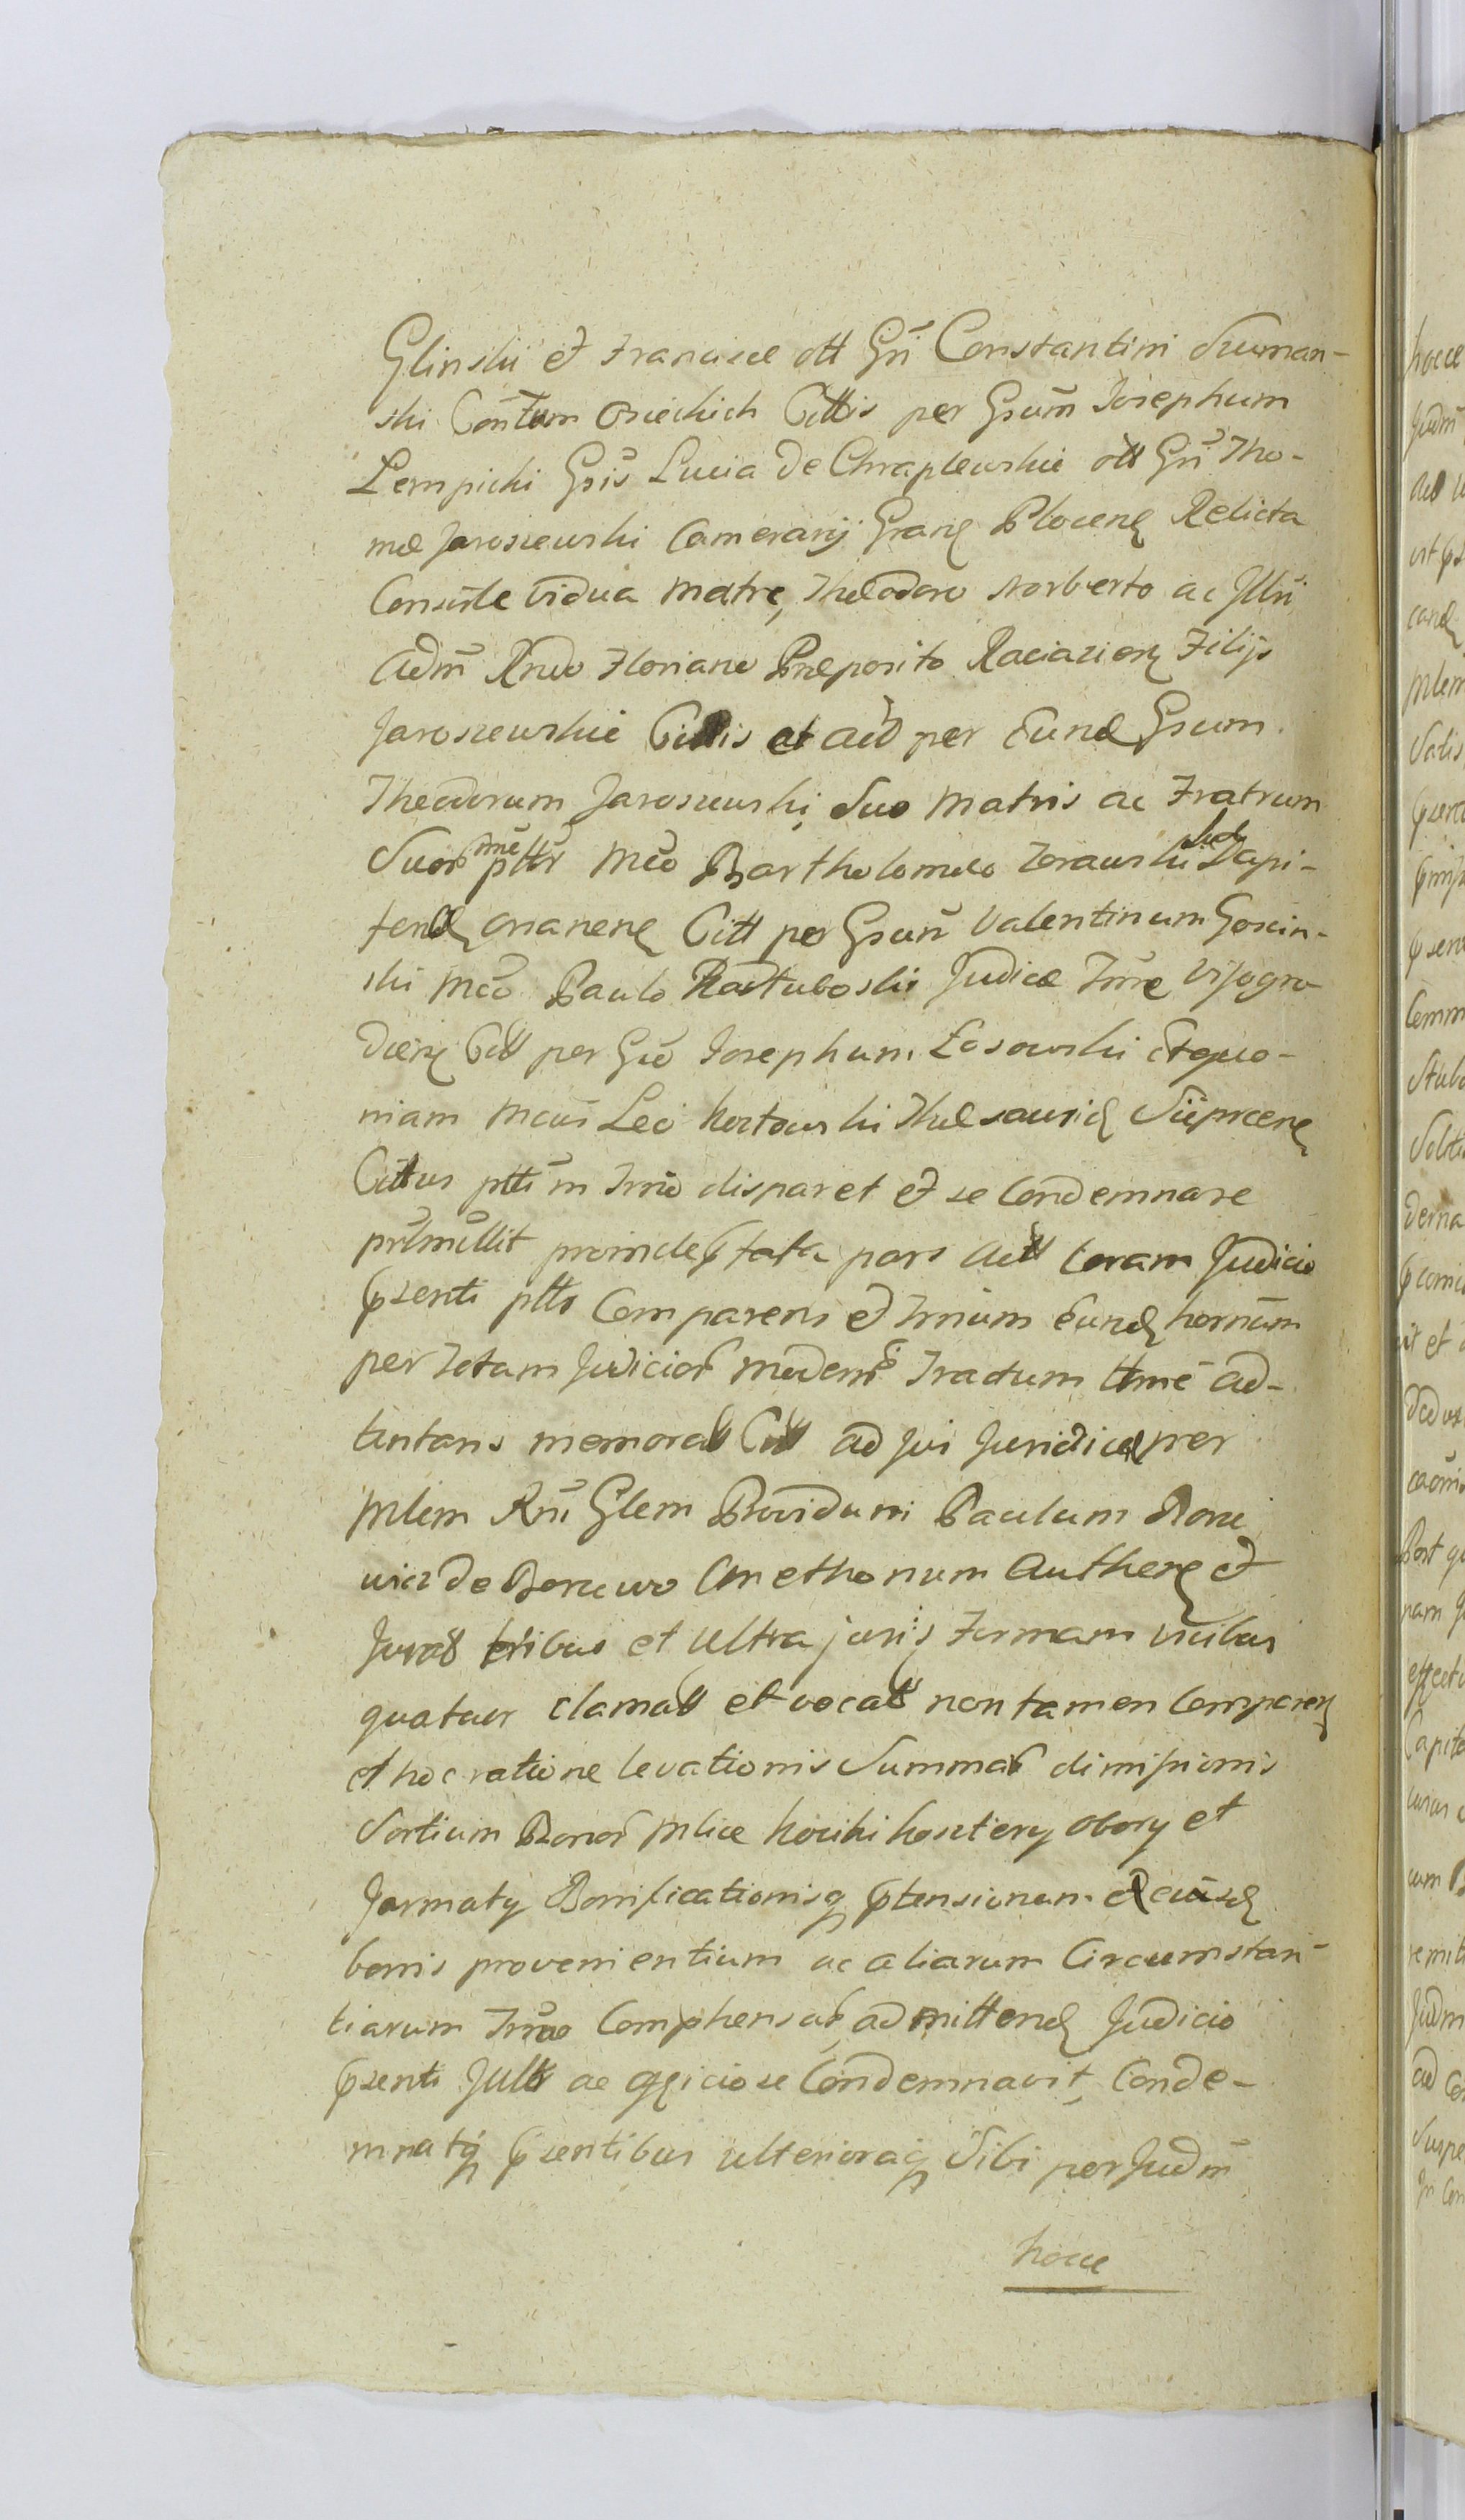 Glinskii et Franciscæ ott Gñi Constantini Suman-
ski Conium Osieckich Cittis per Gsum Josephum
Lempicki Gsis Lucia de Chraplewskie ott Gñi Tho-
mæ Jaroszewski Camerarij Gran Plocen Relicta
Consorte vidua Matre, Theodoro Norberto ac Jllri
Adm Rndo Floriano Præposito Raciazien Filijs
Jaroszewskie Cittis et act per Eund Gsum
Theodorum Jaroszewski, Suo Matris ac Fratrum
Suor nne pttr Mco Bartholomæo Zorawski Sub Dapi-
ferid Ciechanen Citt per Gsum Valentinum Goscin-
ski Mco Paulo Radtuboski Judice Trre Vissogro-
dien Citt per Gm Josephum Łosowski Et quo-
niam Mcus Leo Kortowski Thesaurid Sierpcens
Cittus ptti in Trmo disparet et se Condemnare
permittit proinde pfata pars Act Coram Judicio
psenti ptto Comparens et Trnum Eund hornum
per Totam Judicior modern Tractum ttme ad-
tentans memorat Citt ad Jui Juridice per
Mlem Rni Glem Providum Paulum Boru
wicz de Boruwo Cmethonum Authen et
Jurat tribus et ultra juris Formam vicibus
quatuor clamatt et vocatt non tamen Comparen
et hoc ratione levationis Summar dimissionis
Sortium Bonor Mlice Kociki Kosztery Obory et
Jarmaty Bonificationisq ptensionum Ex eisd
bonis provenientium ac aliarum Circumstan-
tiarum Trmo Comphensar, admittend Judicio
psenti Jultt ac officiose Condemnavit, Conde-
mnatq psentibus ulterioraq Sibi per Judm
hocce